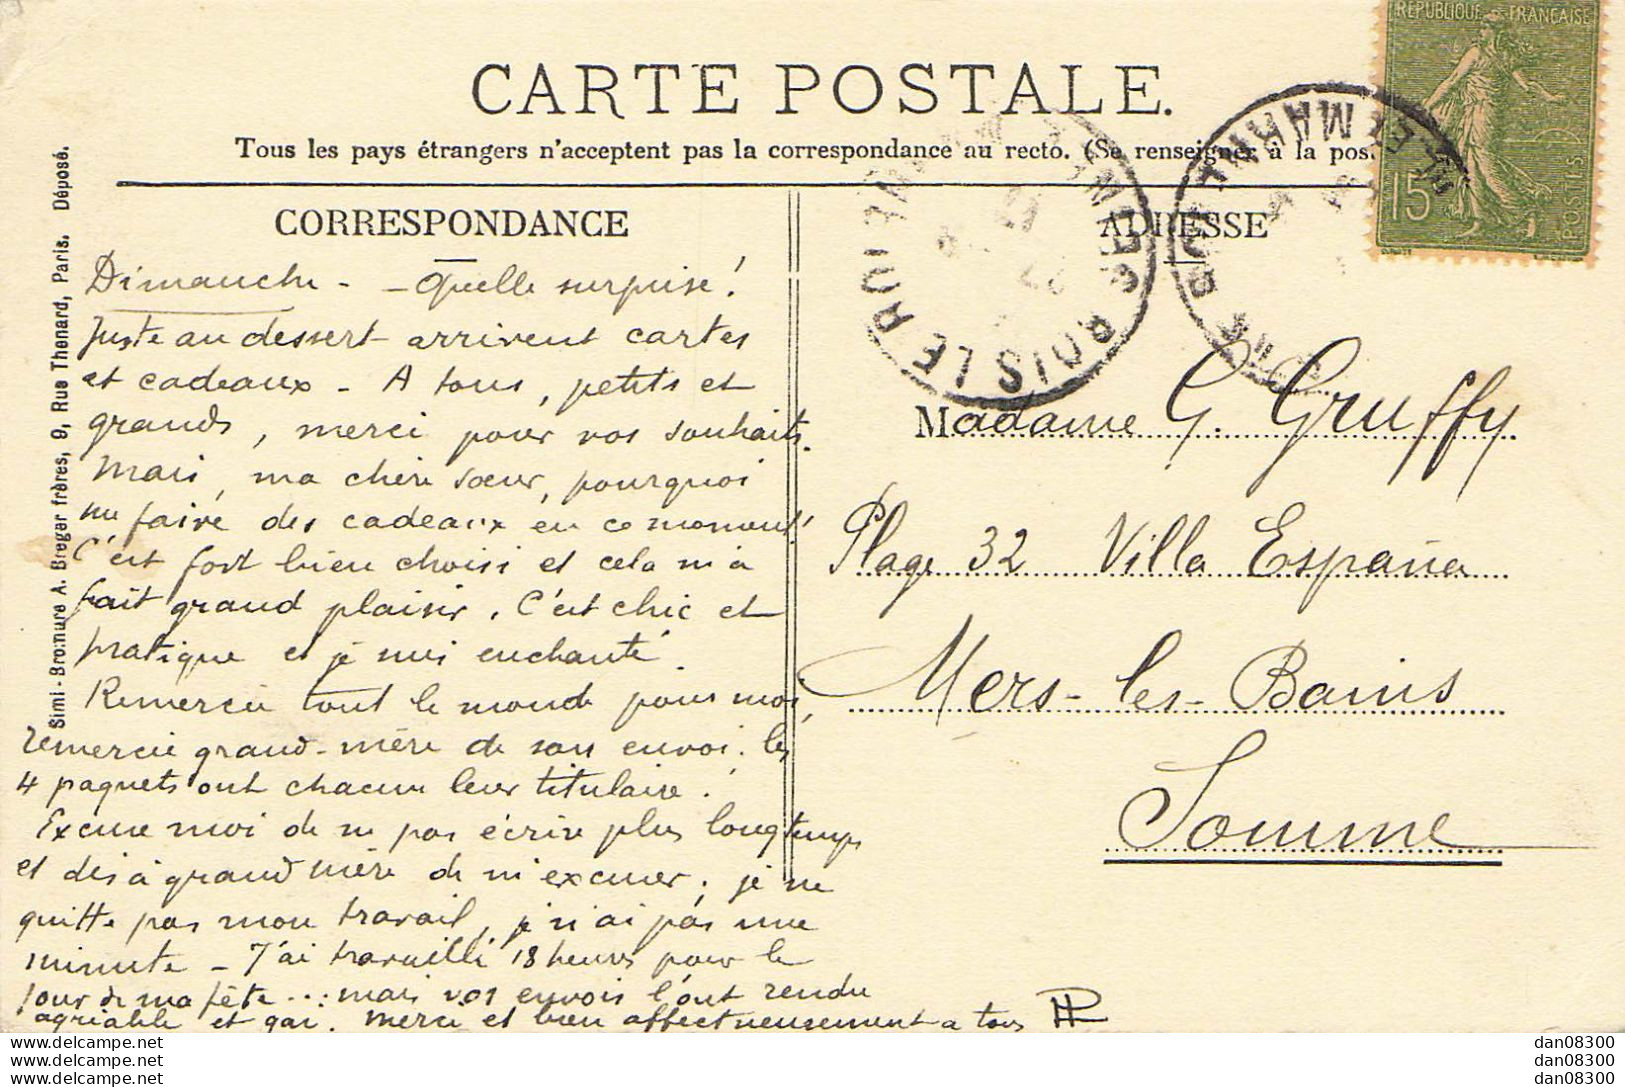 RÉPUBLIQUE FRANÇAISE
15
POSTES
CARTE POSTALE.
Tous les pays étrangers n'acceptent pas la correspondance au recto. (Se renseigner à la pos
CORRESPONDANCE
ADRESSE
BOIS LE ROI
Simi-Bromure A. Breger frères, 9, Rue Thenard, Paris. Déposé.
Dimanche - - Quelle surprise!
Juste au dessert arrivent cartes
et cadeaux - A tous, petits et
grands, merci pour vos souhaits.
Mais, ma chère sœur, pourquoi
me faire des cadeaux en ce moment!
C'est fort bien choisi et cela m'a
fait grand plaisir. C'est chic et
pratique et je suis enchanté.
Remercie tout le monde pour moi,
remercie grand-mère de son envoi. les
4 paquets ont chacun leur titulaire.
Excuse moi de ne pas écrire plus longtemps
et dis à grand mère de m'excuser. je ne
quitte pas mon travail, je n'ai pas une
minute - J'ai travaillé 18 heures pour le
jour de ma fête ... mais vos envois l'ont rendu
agréable et gai. Merci et bien affectueusement a tous
Madame G. Gruffy
Plage 32 Villa España
Mers-les-Bains
Somme
dan08300
dan08300
dan08300
dan08300
dan08300
dan08300